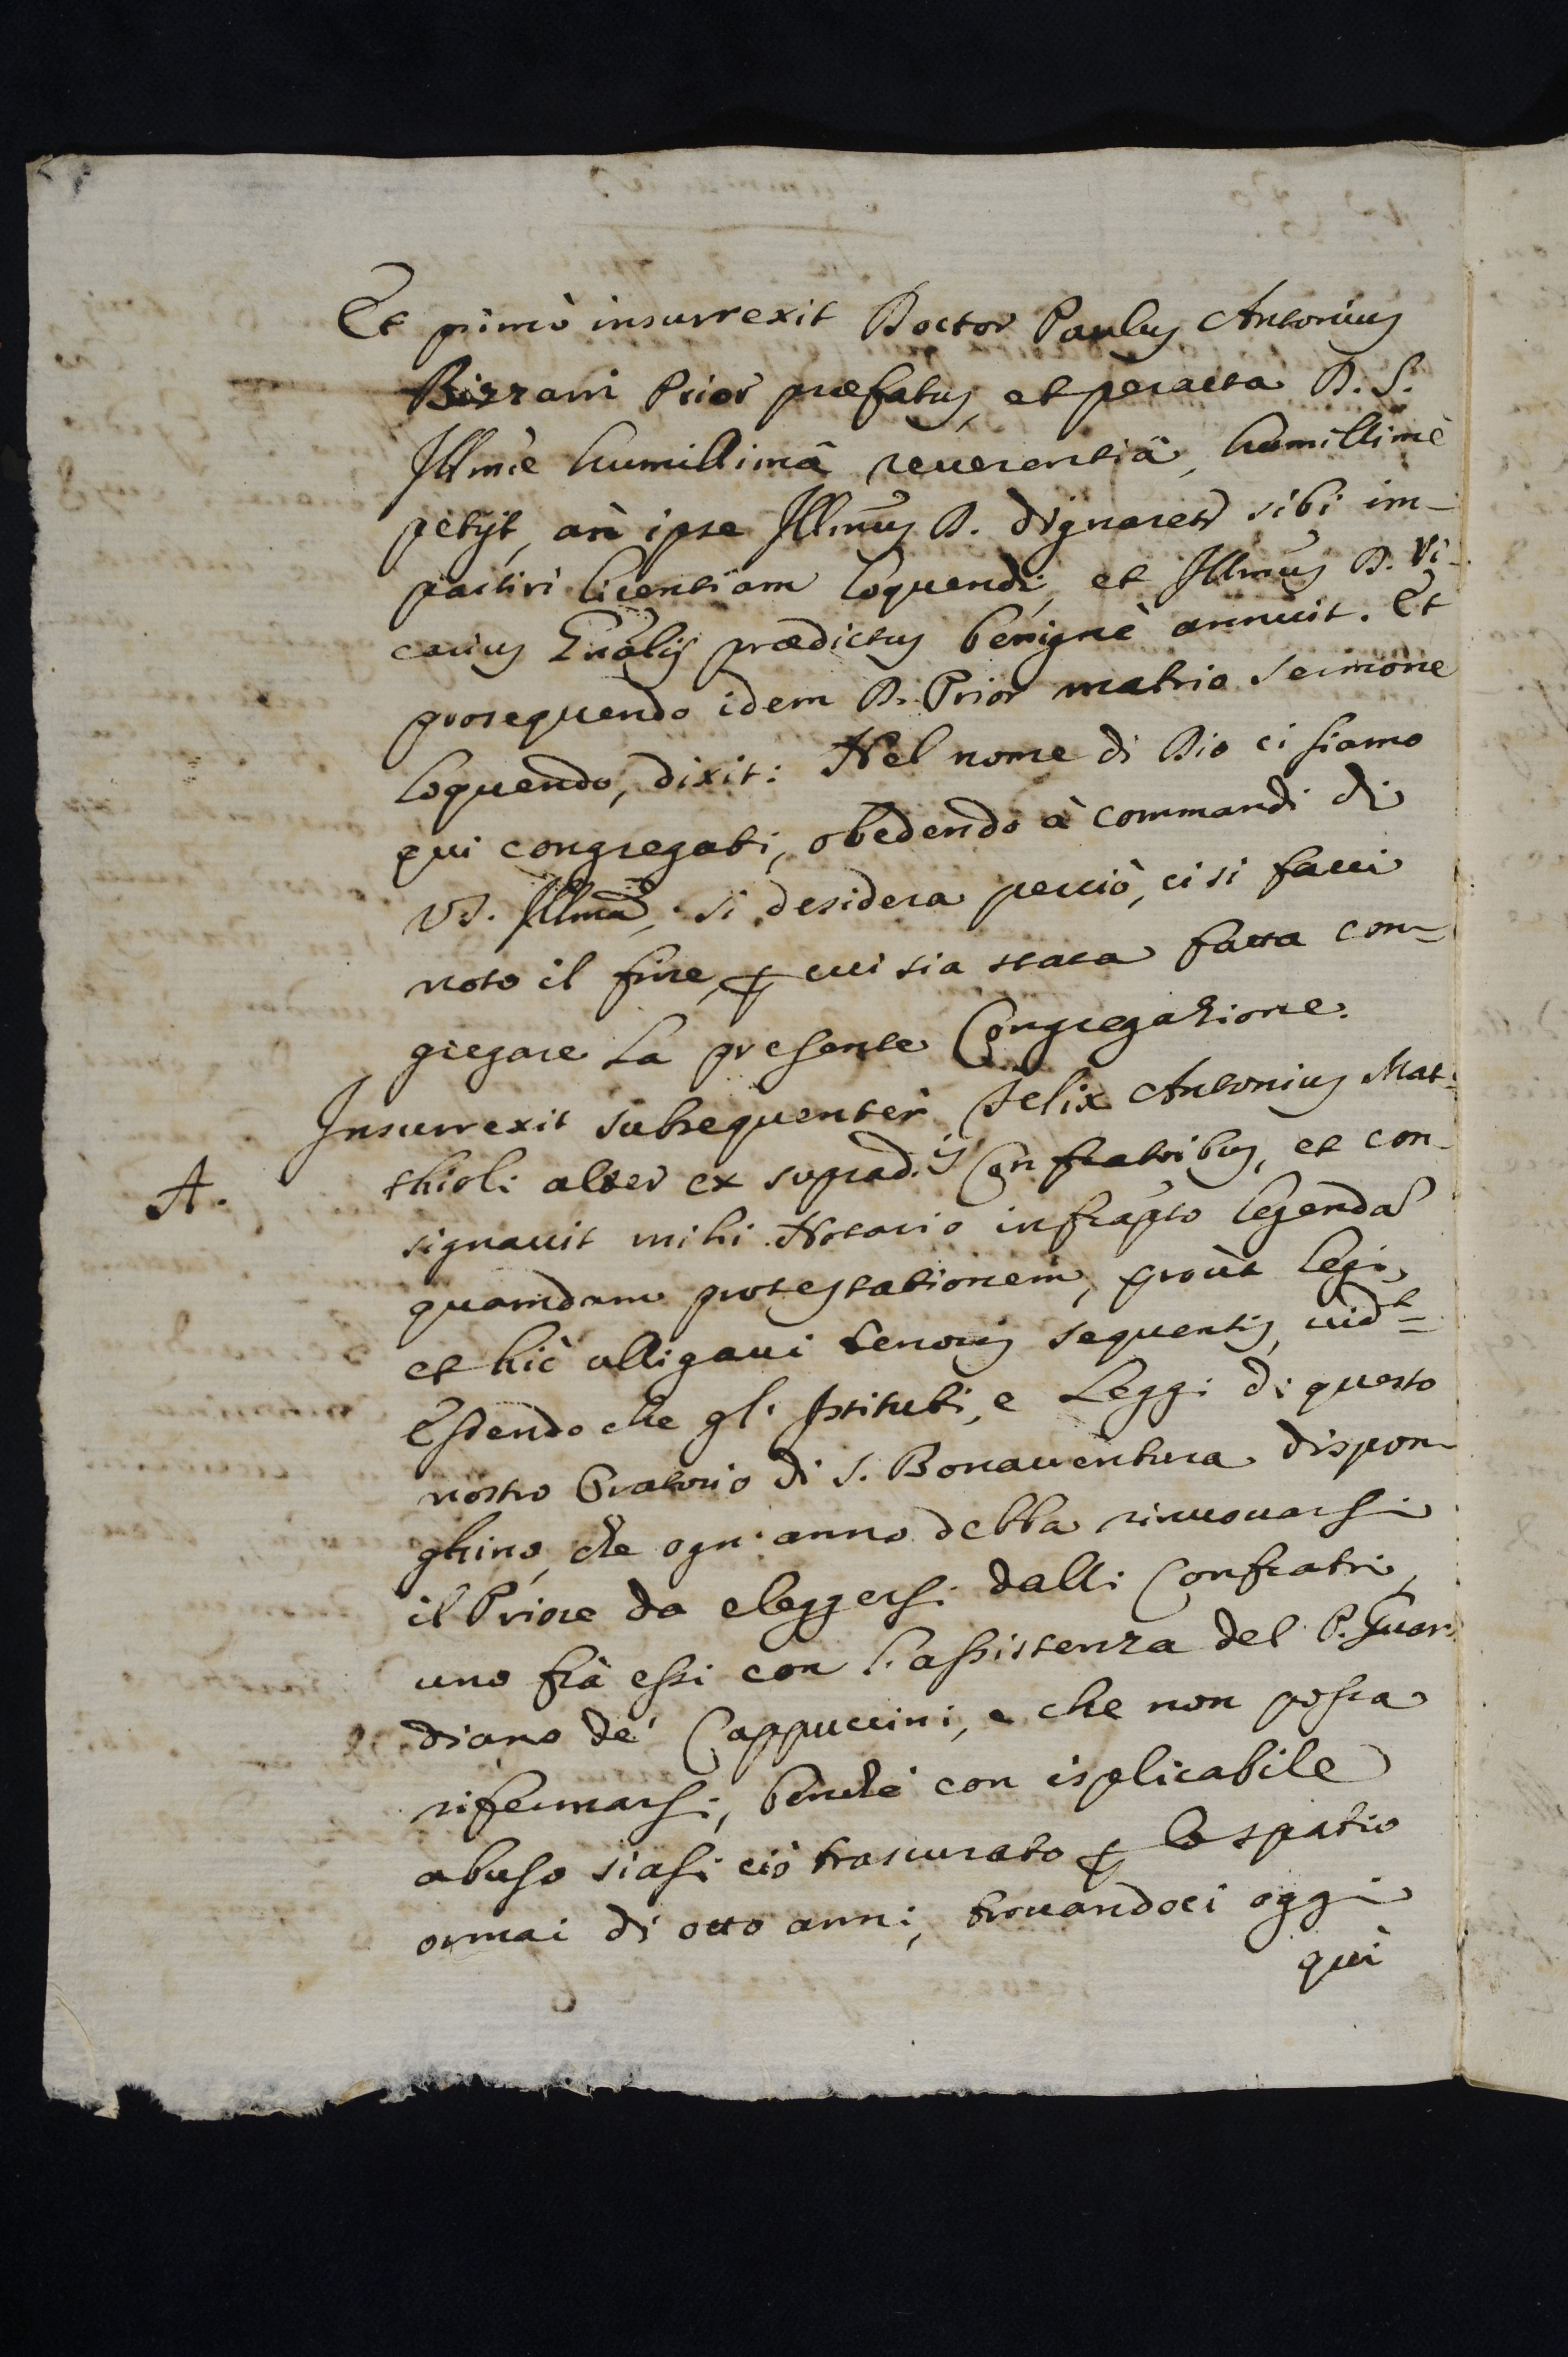 Et primò insurrexit Doctor Paulus Antonius
Bizzarri Prior præfatus, et peracta D. S.
Illmè humillimâ reuerentiâ, humillimè
petijt, an ipse Illmus D. dignaret sibi im-
partiri licentiam loquendi, et Illmus D. Vi-
carius Gnalis prædictus benignè annuit. Et
prosequendo idem D. Prior matrio sermone
loquendo, dixit: Nel nome di Dio ci siamo
qui congregati, obedendo à commandi di
VS. Illma, si desidera perciò, ci si facci
noto il fine, p cui sia stata fatta con-
gregare La presente Congregazione.
Insurrexit subsequenter Felix Antonius Mat-
A. thioli alter ex suprad.is Confratribus, et con-
signauit mihi Notario infrapto legendã
quamdam protestationem, proùt legi,
et hìc alligaui tenoris sequentis, uidt=
Essendo che gl'Istituti, e Leggi di questo
nostro Oratorio di S. Bonauentura dispon-
ghino, che ogn'anno debba rinuouarsi
il Priore da eleggersi dalli Confratri,
uno frà essi con l'assistenza del P. Guar-
diano de' Cappuccini, e che non possa
rifermarsi, benchè con isplicabile
abuso siasi ciò trascurato p lo spatio
ormai di otto anni, trouandoci oggi
quì